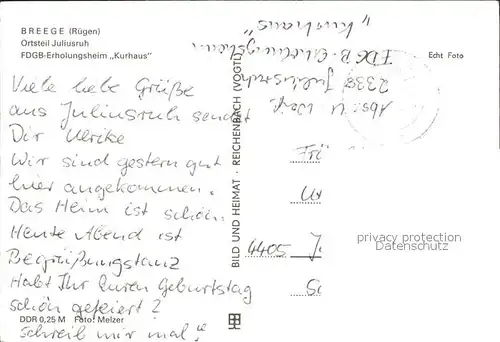 BREEGE (Rügen)
Ortsteil Juliusruh
FDGB-Erholungsheim „Kurhaus"
Echt Foto
Viele liebe Grüße
aus Juliusruh sendet
Dir Ulrike
Wir sind gestern gut
hier angekommen.
Das Heim ist schön.
Heute Abend ist
Begrüßungstanz
Habt Ihr Euren Geburtstag
schön gefeiert?
Schreib mir mal!
DDR 0,25 M Foto: Melzer
BILD UND HEIMAT · REICHENBACH (VOGTL)
Abs: U
2338 Juliusruh
FDGB-Erholungsheim
„Kurhaus"
4405
privacy protection
Datenschutz